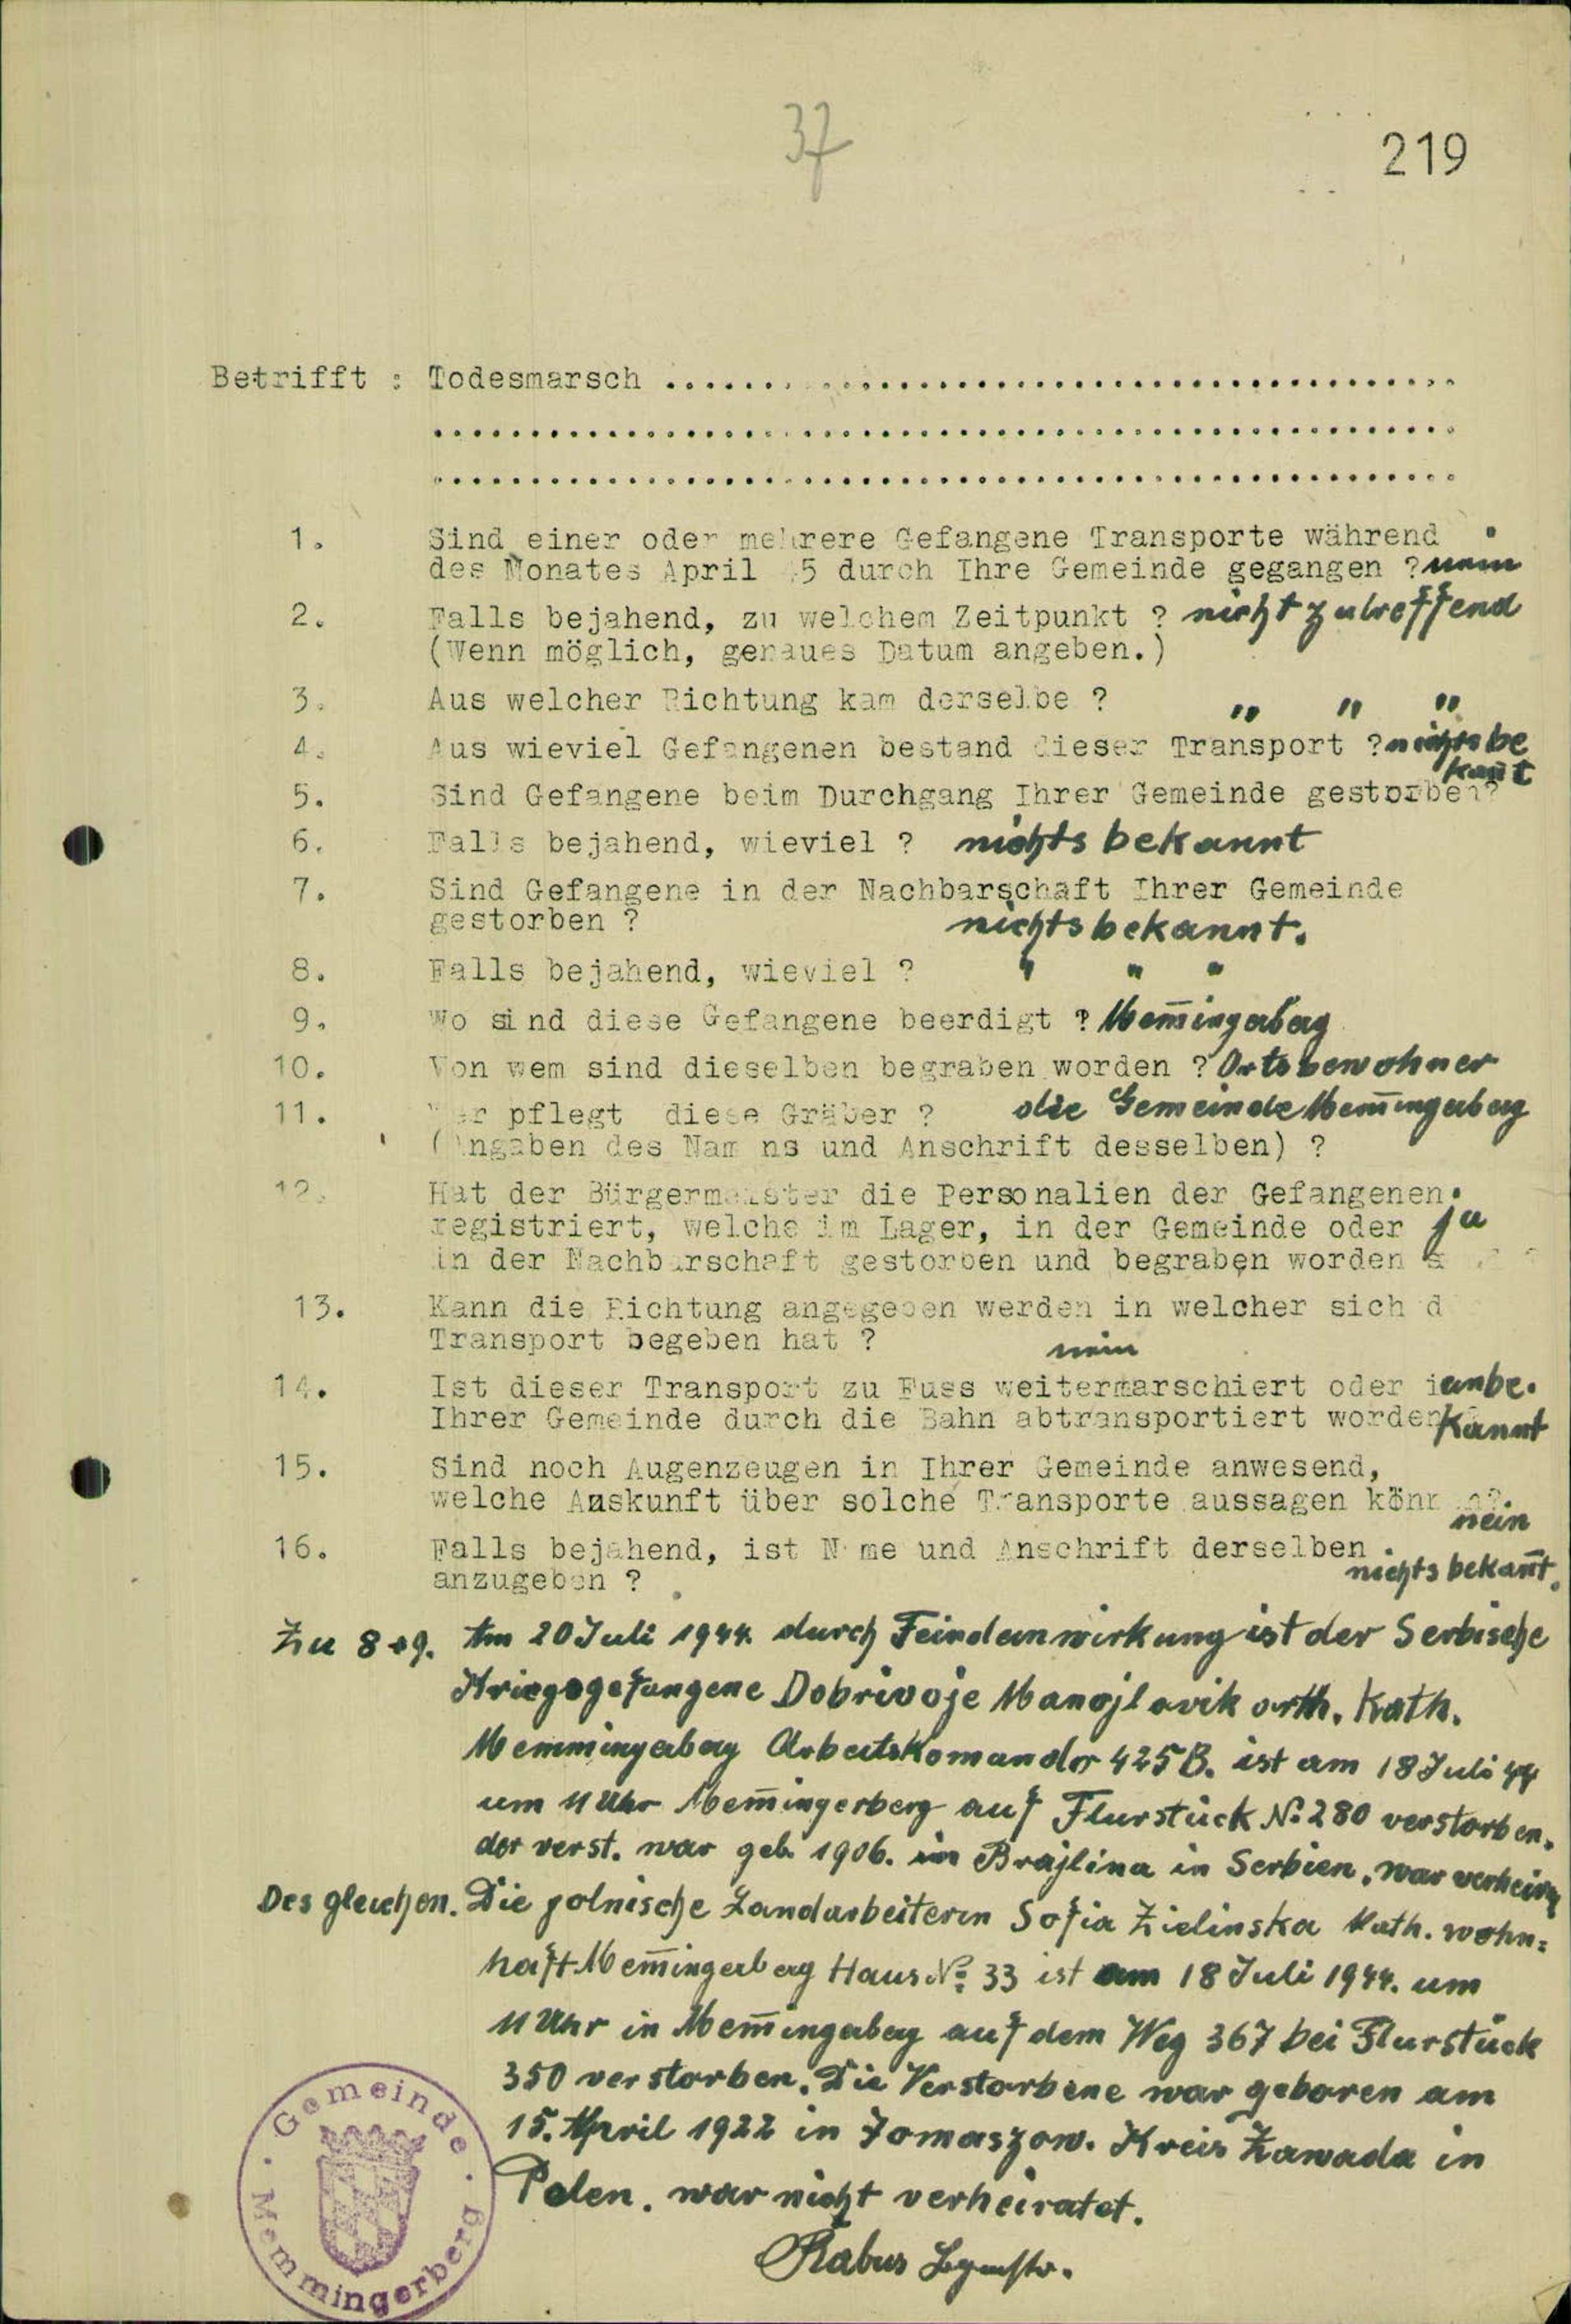 37
219
Betrifft : Todesmarsch ............................................
............................................................
............................................................
1. Sind einer oder mehrere Gefangene Transporte während
des Monates April 45 durch Ihre Gemeinde gegangen ? nein
2. Falls bejahend, zu welchem Zeitpunkt ? nicht zutreffend
(Wenn möglich, genaues Datum angeben.)
3. Aus welcher Richtung kam derselbe ? " " "
4. Aus wieviel Gefangenen bestand dieser Transport ? nichts be
kan̄t
5. Sind Gefangene beim Durchgang Ihrer Gemeinde gestorben?
6. Falls bejahend, wieviel ? nichts bekannt
7. Sind Gefangene in der Nachbarschaft Ihrer Gemeinde
gestorben ? nichts bekannt.
8. Falls bejahend, wieviel ? " " "
9. Wo sind diese Gefangene beerdigt ? Mem̄ingerberg
10. Von wem sind dieselben begraben worden ? Ortsbewohner
11. Wer pflegt diese Gräber ? die Gemeinde Mem̄ingerberg
(Angaben des Nam ns und Anschrift desselben) ?
12. Hat der Bürgermeister die Personalien der Gefangenen
registriert, welche im Lager, in der Gemeinde oder ja
in der Nachbarschaft gestorben und begraben worden s
13. Kann die Richtung angegeben werden in welcher sich d
Transport begeben hat ? nein
14. Ist dieser Transport zu Fuss weitermarschiert oder i unbe.
Ihrer Gemeinde durch die Bahn abtransportiert worden kannt
15. Sind noch Augenzeugen in Ihrer Gemeinde anwesend,
welche Auskunft über solche Transporte aussagen könn n?
nein
16. Falls bejahend, ist N me und Anschrift derselben
anzugeben ? nichts bekan̄t.
Zu 8+9. Am 20 Juli 1944. durch Feindeinwirkung ist der Serbische
Kriegsgefangene Dobrivoje Manojlovik orth. Kath.
Memmingerberg Arbeitskomando 425 B. ist am 18 Juli 44
um 11 Uhr Mem̄ingerberg auf Flurstück No 280 verstorben.
der verst. war geb. 1906. in Brajlina in Serbien, war verheira
Des gleichen. Die polnische Landarbeiterin Sofia Zielinska Kath. wohn=
haft Mem̄ingerberg Haus No 33 ist am 18 Juli 1944. um
11 Uhr in Mem̄ingerberg auf dem Weg 367 bei Flurstück
350 verstorben. Die Verstorbene war geboren am
15. April 1922 in Tomaszow. Kreis Zawada in
Polen. war nicht verheiratet.
Rabus Bgmstr.
Gemeinde
Memmingerberg